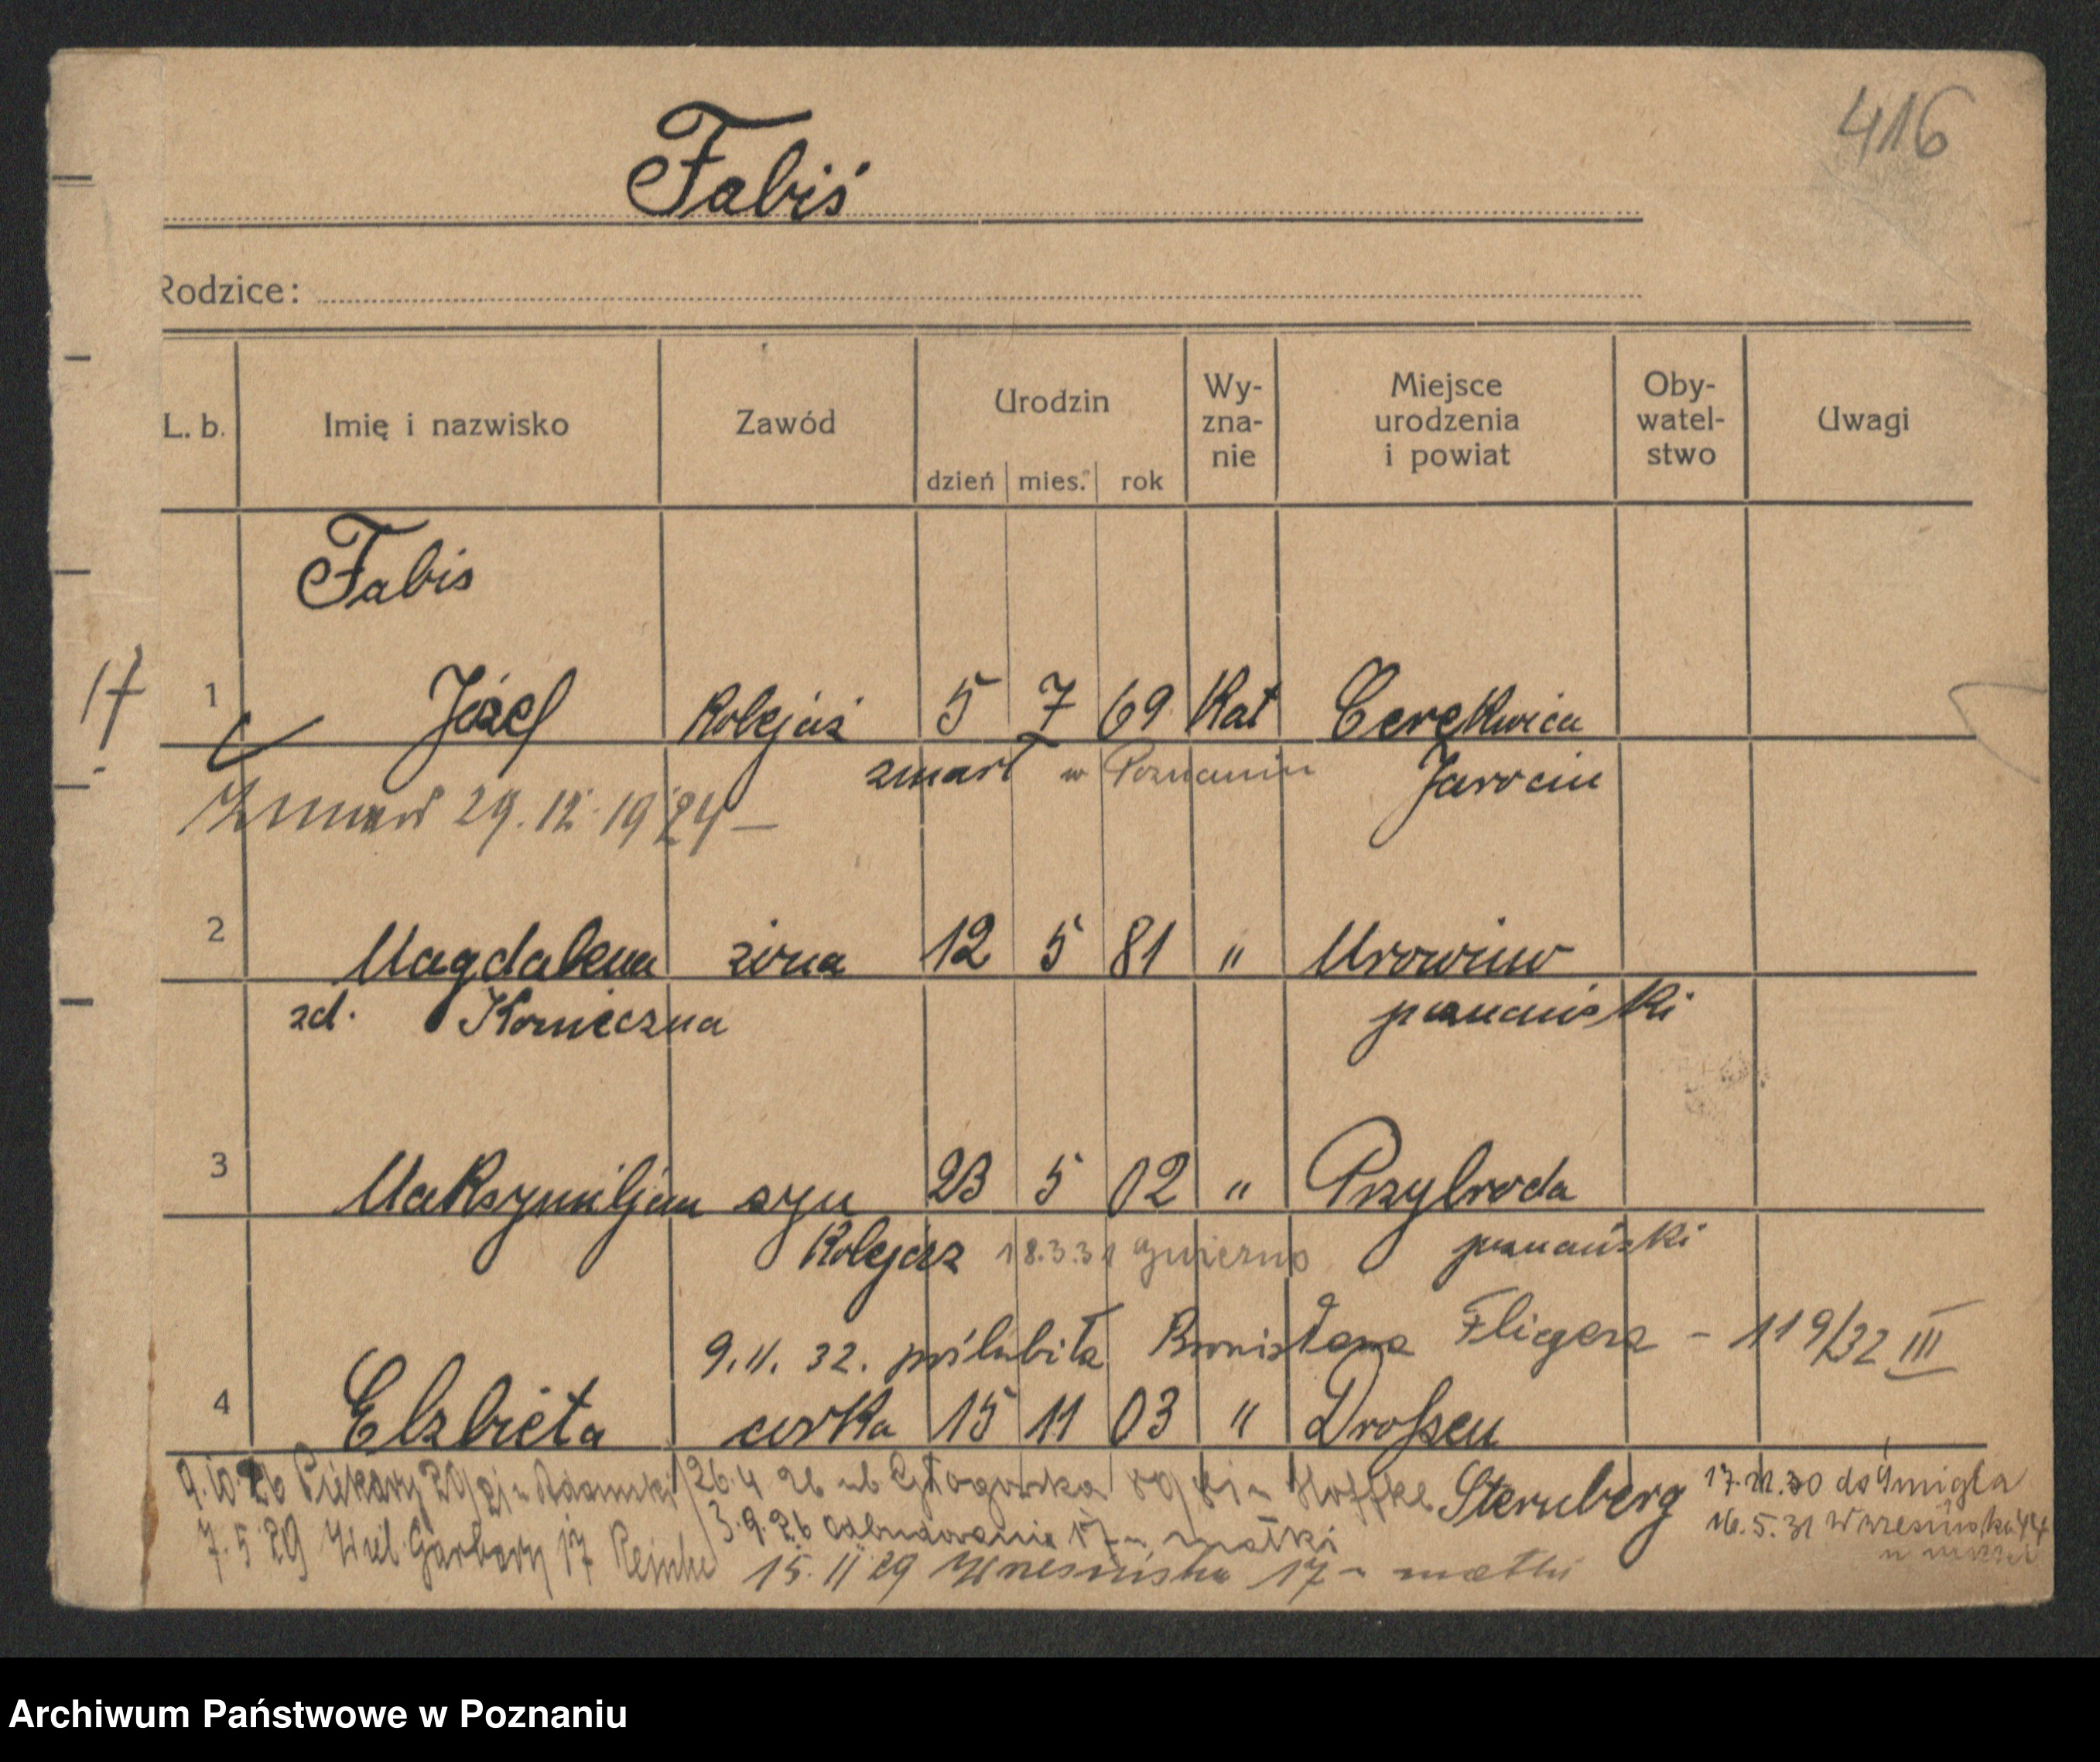 416
Fabiś
Rodzice:
L. b. Imię i nazwisko Zawód Urodzin Wy-zna-nie Miejsce urodzenia i powiat Oby-watel-stwo Uwagi
dzień mies. rok
Fabis
17
1 Józef Kolejaż 5 7 69 Kat Cerekwica
zmarł w Poznaniu Jarocin
Zmarł 29.12.1924 —
2 Magdalena żona 12 5 81 " Mrowino
zd. Konieczna poznański
3 Maksymiljan syn 23 5 02 " Przybroda
Kolejarz 18.3.31 Gniezno poznański
9.11.32. poślubiła Bronisława Fliegera - 119/32 III
4 Elzbieta corka 15 11 03 " Droßen
Sternberg
9.10.26 Piekary 20/21 u Adamski 26.4 26 ul. Głogowska u Hoffke 17.11.30 do Śmigla
7.5.29 Wiel. Garbary 17 3.9.26 17 u matki 16.5.31 Wrzesińska 44
15.11.29 Wrzesińska 17 u matki
Archiwum Państwowe w Poznaniu